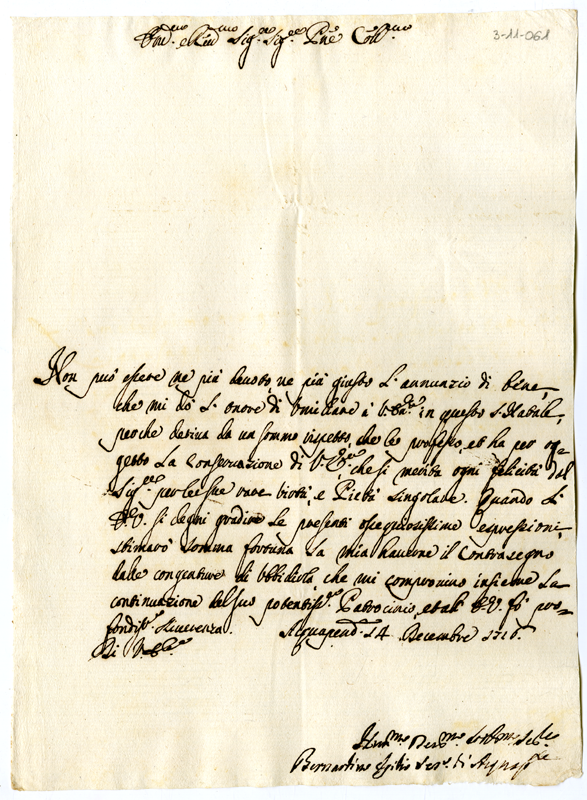 3-11-061
Em.mo e Rev.mo Sig.re Sig.re P.ne Coll.mo
Non può essere ne più devoto, ne più giusto L'annunzio di bene,
che mi dò L'onore di Umiliare à V.Em.za in questo S. Natale,
perche deriva da un sommo rispetto, che le professo, et ha per og-
getto La Conservazione di V.Em.za che si merita ogni felicità dal
Sig.re per le sue rare virtù, e Pietà singolare. Quando L'
E.V. si degni gradire le presenti ossequiosissime espressioni,
stimarò somma fortuna La mia havere il Contrasegno
dalle congenture di Ubbidirla, che mi comprovino insieme La
continuazione del suo potentiss.o Patrocinio, et all' E.V. fò pro-
fondiss.a Riverenza. Acquapend.te 14 Decembre 1716.
Di V.Em.za
Um.mo Dev.mo Obb.mo
Bernardino di Acquap.te